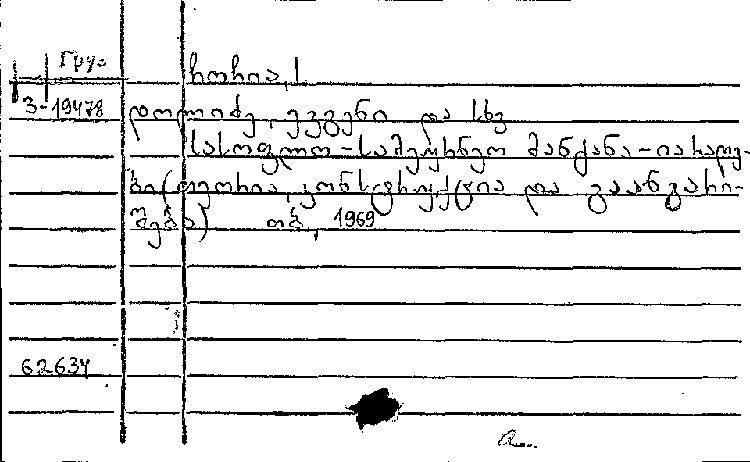 Груз
ხოხია, I
3-19478 დოლიძე, ევგენი და სხვ
სასოფლო-სამეურნეო მანქანა-იარაღე-
ბი (თეორია, კონსტრუქცია და გაანგარი-
შება) თბ, 1969
62634